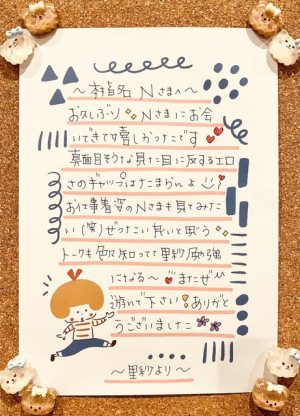 〜本指名 Nさまへ〜
お久しぶり✨Nさまにお会
いできてて嬉しかったです❤
真面目そうな見た目に反するエロ
さのギャップはたまらんよ
お仕事着姿のNさまも見てみた
い(笑)ぜったい良いと思う✨
トークも色々知ってて里紗勉強
になる〜❤またぜ
ひ遊んで下さい!ありがと
うございました
〜里紗より〜